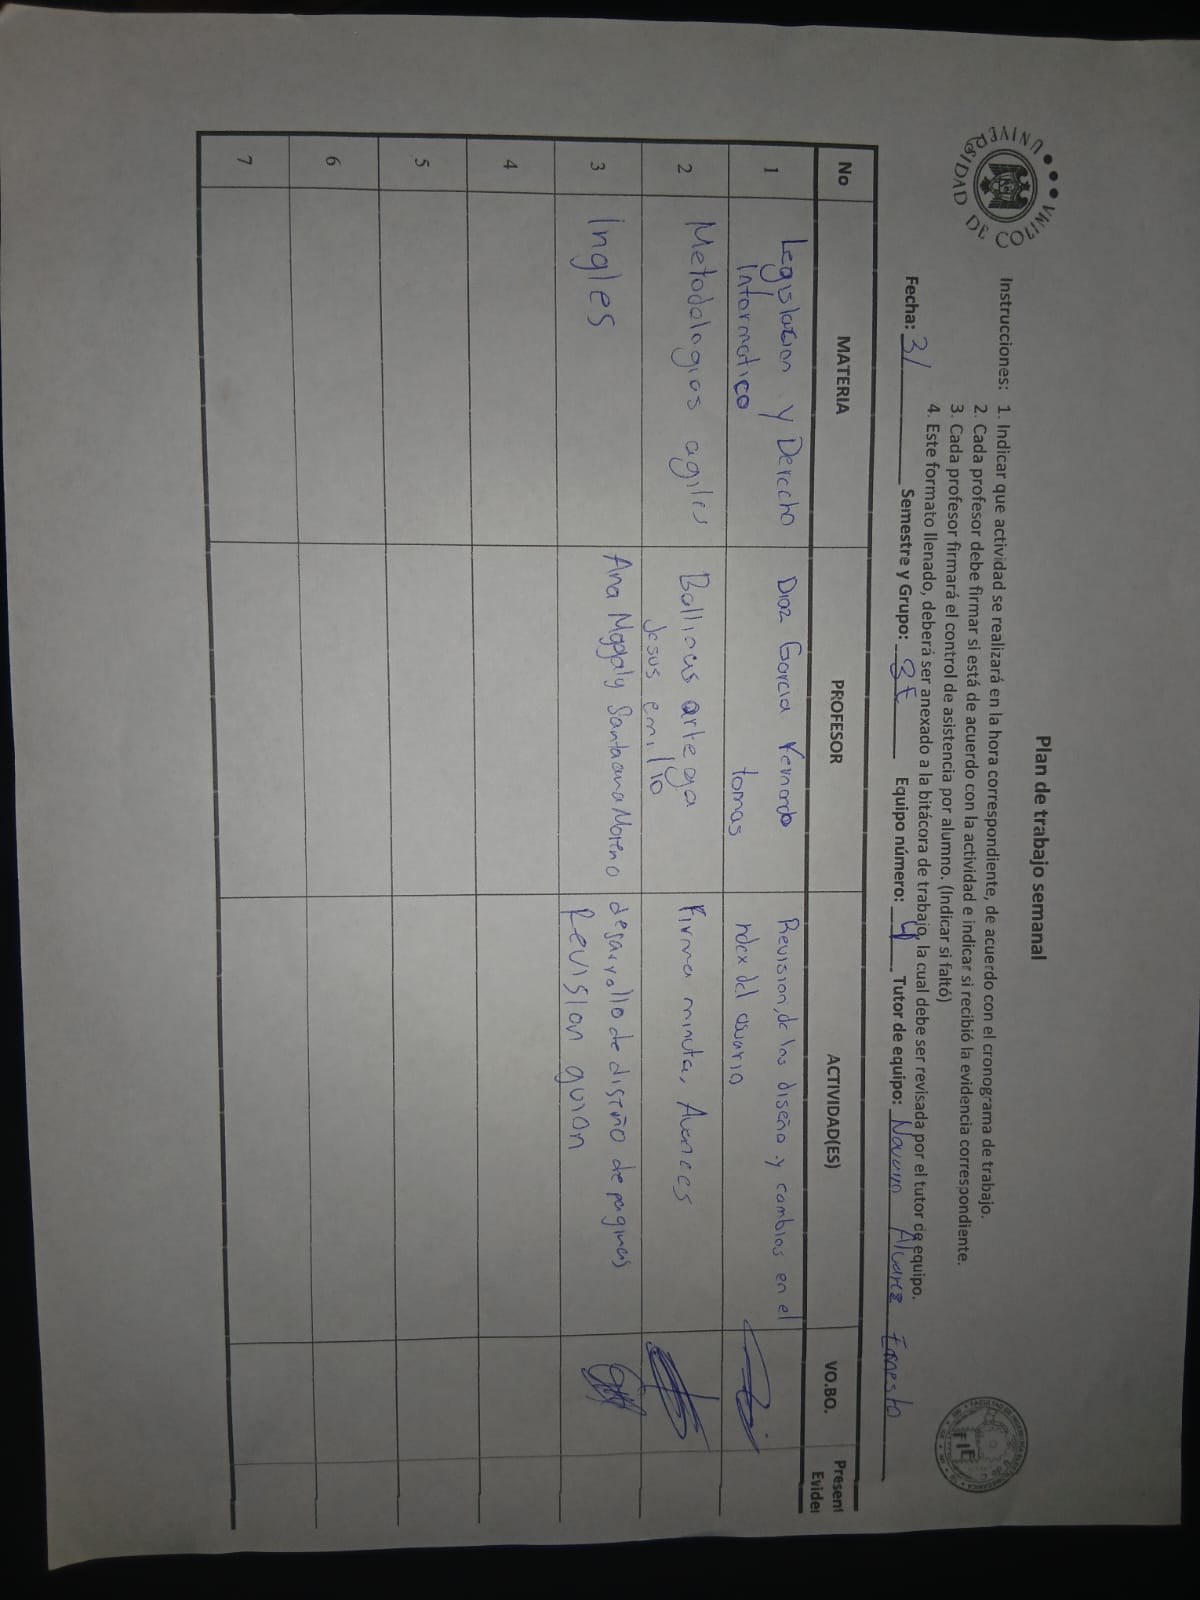 UNIVERSIDAD DE COLIMA
Plan de trabajo semanal
Instrucciones: 1. Indicar que actividad se realizará en la hora correspondiente, de acuerdo con el cronograma de trabajo.
2. Cada profesor debe firmar si está de acuerdo con la actividad e indicar si recibió la evidencia correspondiente.
3. Cada profesor firmará el control de asistencia por alumno. (Indicar si faltó)
4. Este formato llenado, deberá ser anexado a la bitácora de trabajo, la cual debe ser revisada por el tutor de equipo.
Fecha: 3/ Semestre y Grupo: 3E Equipo número: 4 Tutor de equipo: Navarro Alvarez Ernesto
No MATERIA PROFESOR ACTIVIDAD(ES) VO.BO. Present
Eviden
1 Legislacion y Derecho Diaz Garcia Fernando Revision, de los diseño y cambios en el
Informatico tomas index del usuario
2 Metodologias agiles Ballinas artega Firma minuta, Avances
Jesus emilio
3 Ingles Ana Magaly Santa ana Moreno desarrollo de diseño de paginas
Revision guion
4
5
6
7